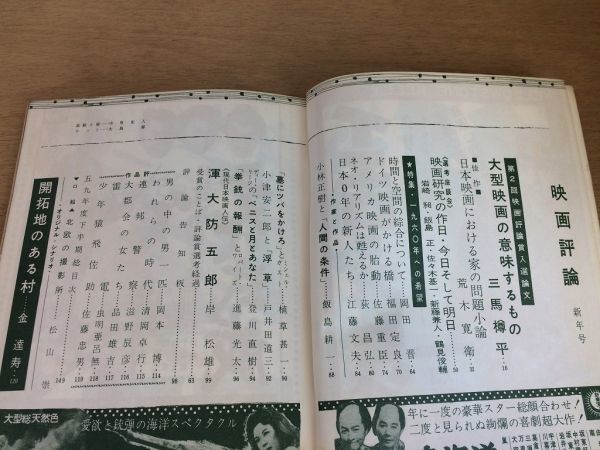 映画評論
新年号
第2回映画評論賞入選論文
大型映画の意味するもの 三馬樽平…16
■佳作■
日本映画における家の問題小論 荒木寛衛…32
映画研究の昨日・今日そして明日…50
岩崎昶・飯島正・佐々木基一・新藤兼人・鶴見俊輔
★特集・一九六〇年への希望
時間と空間の綜合について 岡田晋…64
ドイツ映画がかける橋 福田定良…70
アメリカ映画の胎動 佐藤重臣…74
ネオ・リアリズムは甦えるか 荻昌弘…80
日本0年の新人たち 江藤文夫…84
■作家と作品■
小林正樹と「人間の条件」 飯島耕一…88
「墓にツバをかけろ」と 植草甚一…90
小津安二郎と「浮草」 戸井田道三…92
「ベニスと月とあなた」 登川直樹…94
「拳銃の報酬」 進藤光太…96
■現代日本映画人伝■
渾大防五郎 岸松雄…99
受賞のことば・評論賞選考経過…63
評論告知板…98
作品評
男の中の男一匹 岡本博…114
われらの時代 清岡卓行…115
連邦警察 滋野辰彦…116
大都会の女たち 品田雄吉…117
雷電 虫明亜呂無…118
少年猿飛佐助 佐藤忠男…119
五九年度下半期総目次…149
▼口絵▲北欧の撮影所 松山崇
■オリジナル・シナリオ■
開拓地のある村 金達寿…120
年に一度の豪華スター総顔合わせ!
二度と見られぬ絢爛の喜劇超大作!
大型総天然色
愛欲と銃弾の海洋スペクタクル